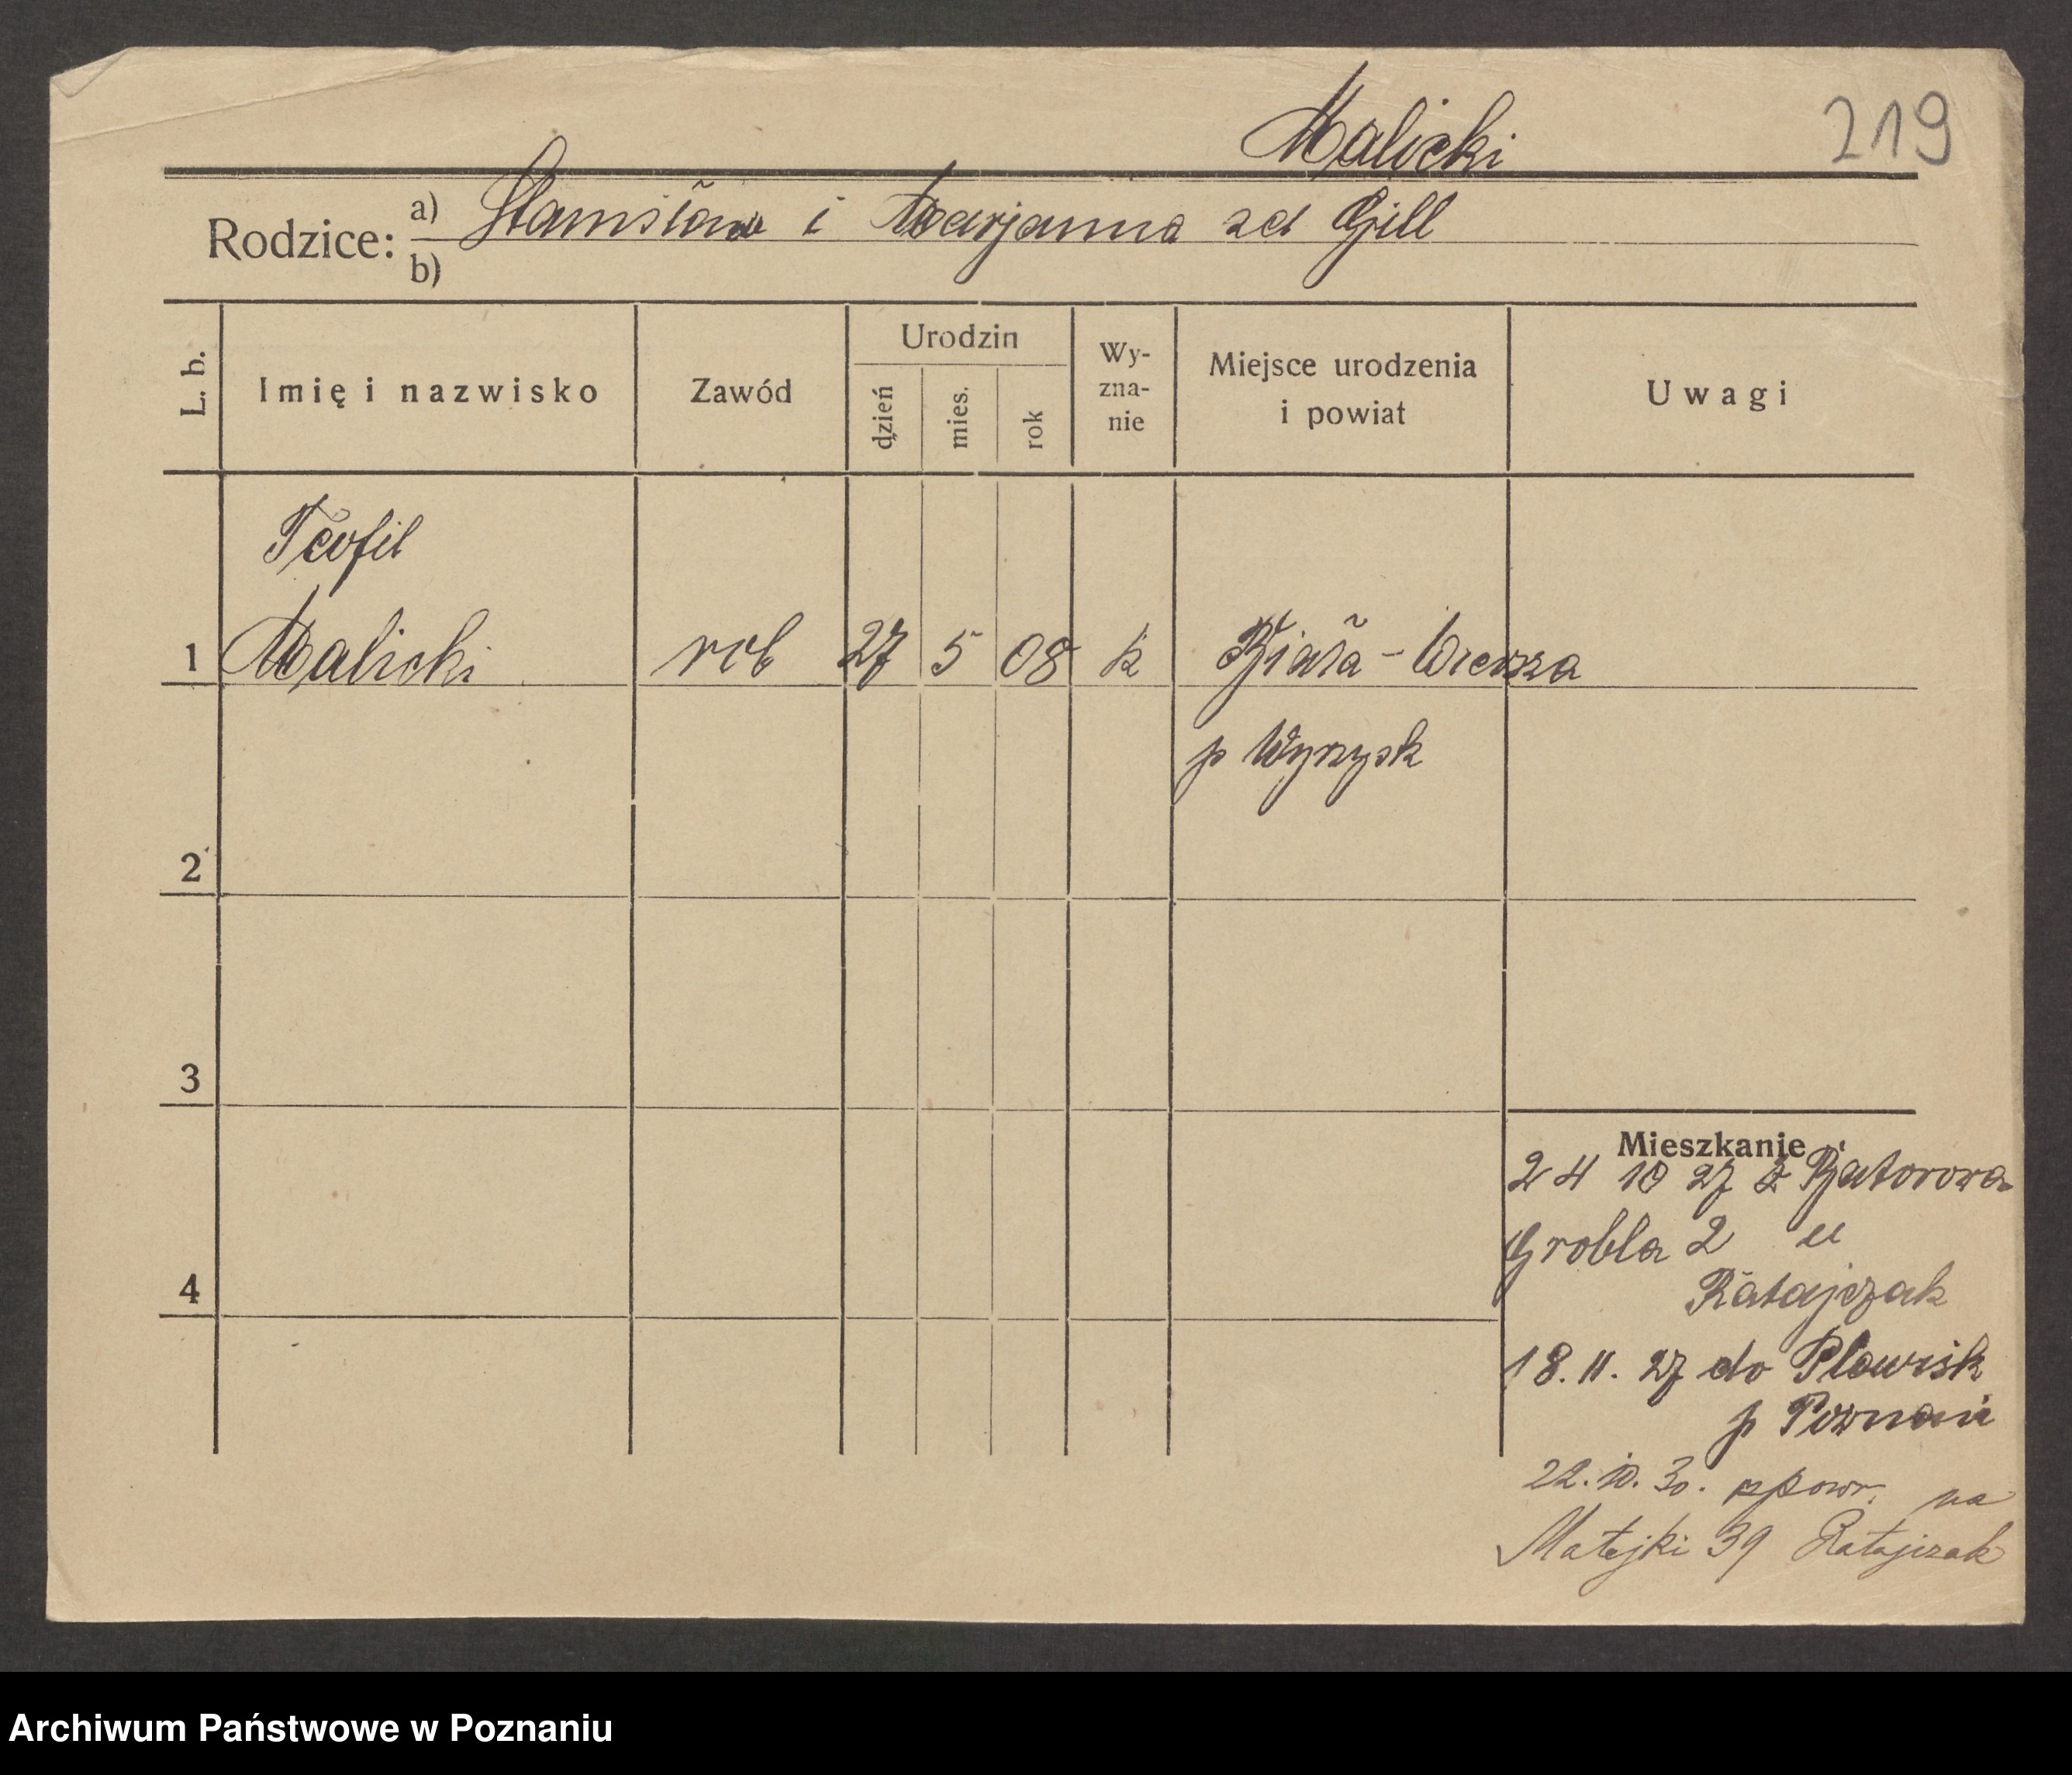 Malicki
219
Rodzice: a) Stanisław i Marjanna zd Gill
b)
L. b.
Imię i nazwisko
Zawód
Urodzin
dzień
mies.
rok
Wy-
zna-
nie
Miejsce urodzenia
i powiat
Uwagi
Teofil
1 Malicki rob 27 5 08 k Biała-
p Wyrzysk
2
3
4
Mieszkanie
24 10 27 z Batorowa
Grobla 2 u
Ratajczak
18.11.27 do Plewisk
p Poznań
22.10.30. powr. na
Matejki 39 Ratajczak
Archiwum Państwowe w Poznaniu